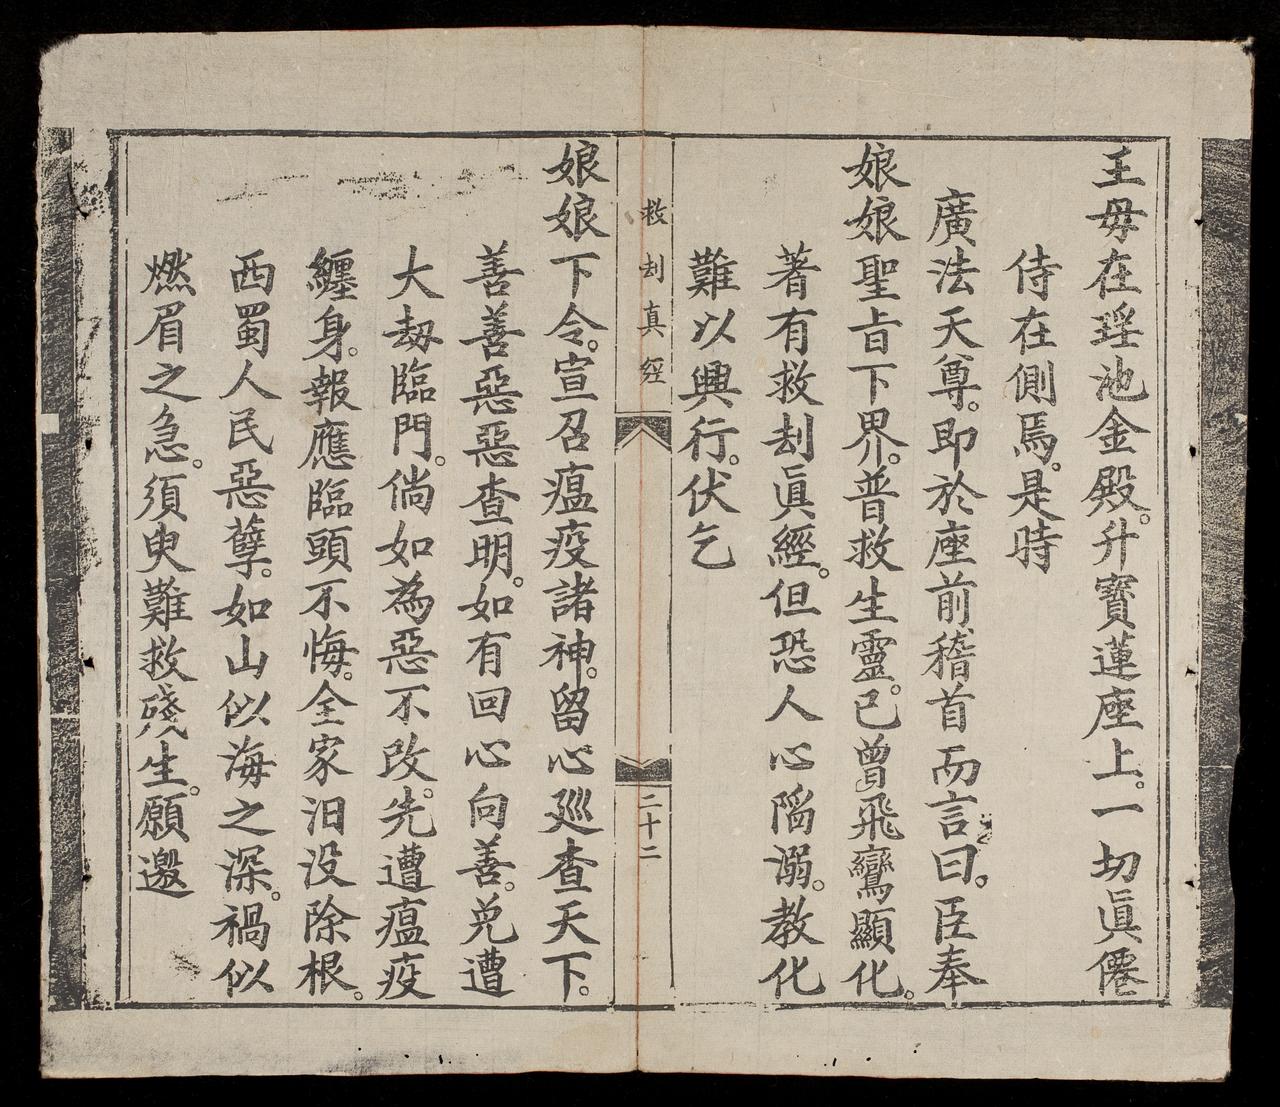 王毋在瑶池金殿。升寶蓮座上。一切眞僊
侍在側焉。是時
廣法天尊。即於座前稽首而言曰。臣奉
娘娘聖旨下界。普救生靈。已曾飛鸞顯化。
著有救刦眞經。但恐人心陷溺。教化
難以興行。伏乞
救刦真經
二十二
娘娘下令。宣召瘟疫諸神。留心廵查天下。
善善惡惡查明。如有回心向善。免遭
大刼臨門。倘如為惡不改。先遭瘟疫
纏身。報應臨頭不悔。全家汨没除根。
西蜀人民惡孽。如山似海之深。禍似
燃眉之急。須臾難救殘生。願邀